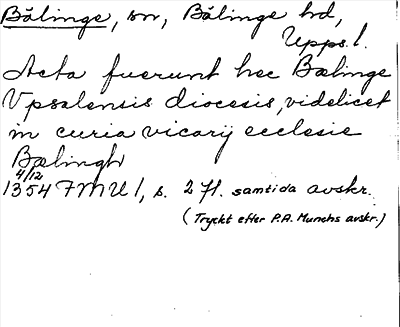 Bälinge, sn, Bälinge hd,
Upps. l.
Acta fuerunt hec Bælinge
Vpsalensis diocesis, videlicet
in curia vicarij ecclesie
Bælingh
4/12
1354 FMU 1, s. 2 fl. samtida avskr.
(Tryckt efter P.A. Munchs avskr.)